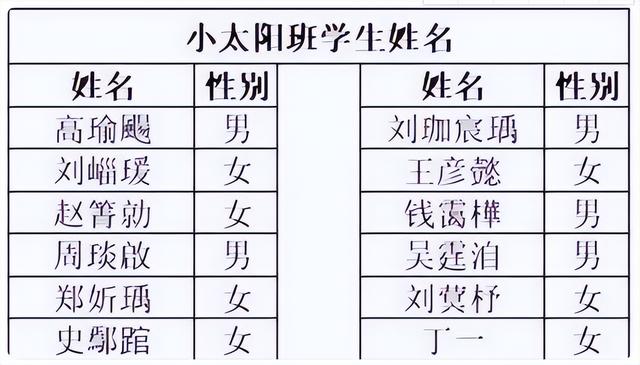 小太阳班学生姓名
姓名 性别 姓名 性别
高瑜飏 男 刘珈宸瑀 男
刘崰瑗 女 王彦懿 女
赵箐勍 女 钱霭樺 男
周琰啟 男 吴霆洎 男
郑妡瑀 女 刘蓂杼 女
史鄹 女 丁一 女